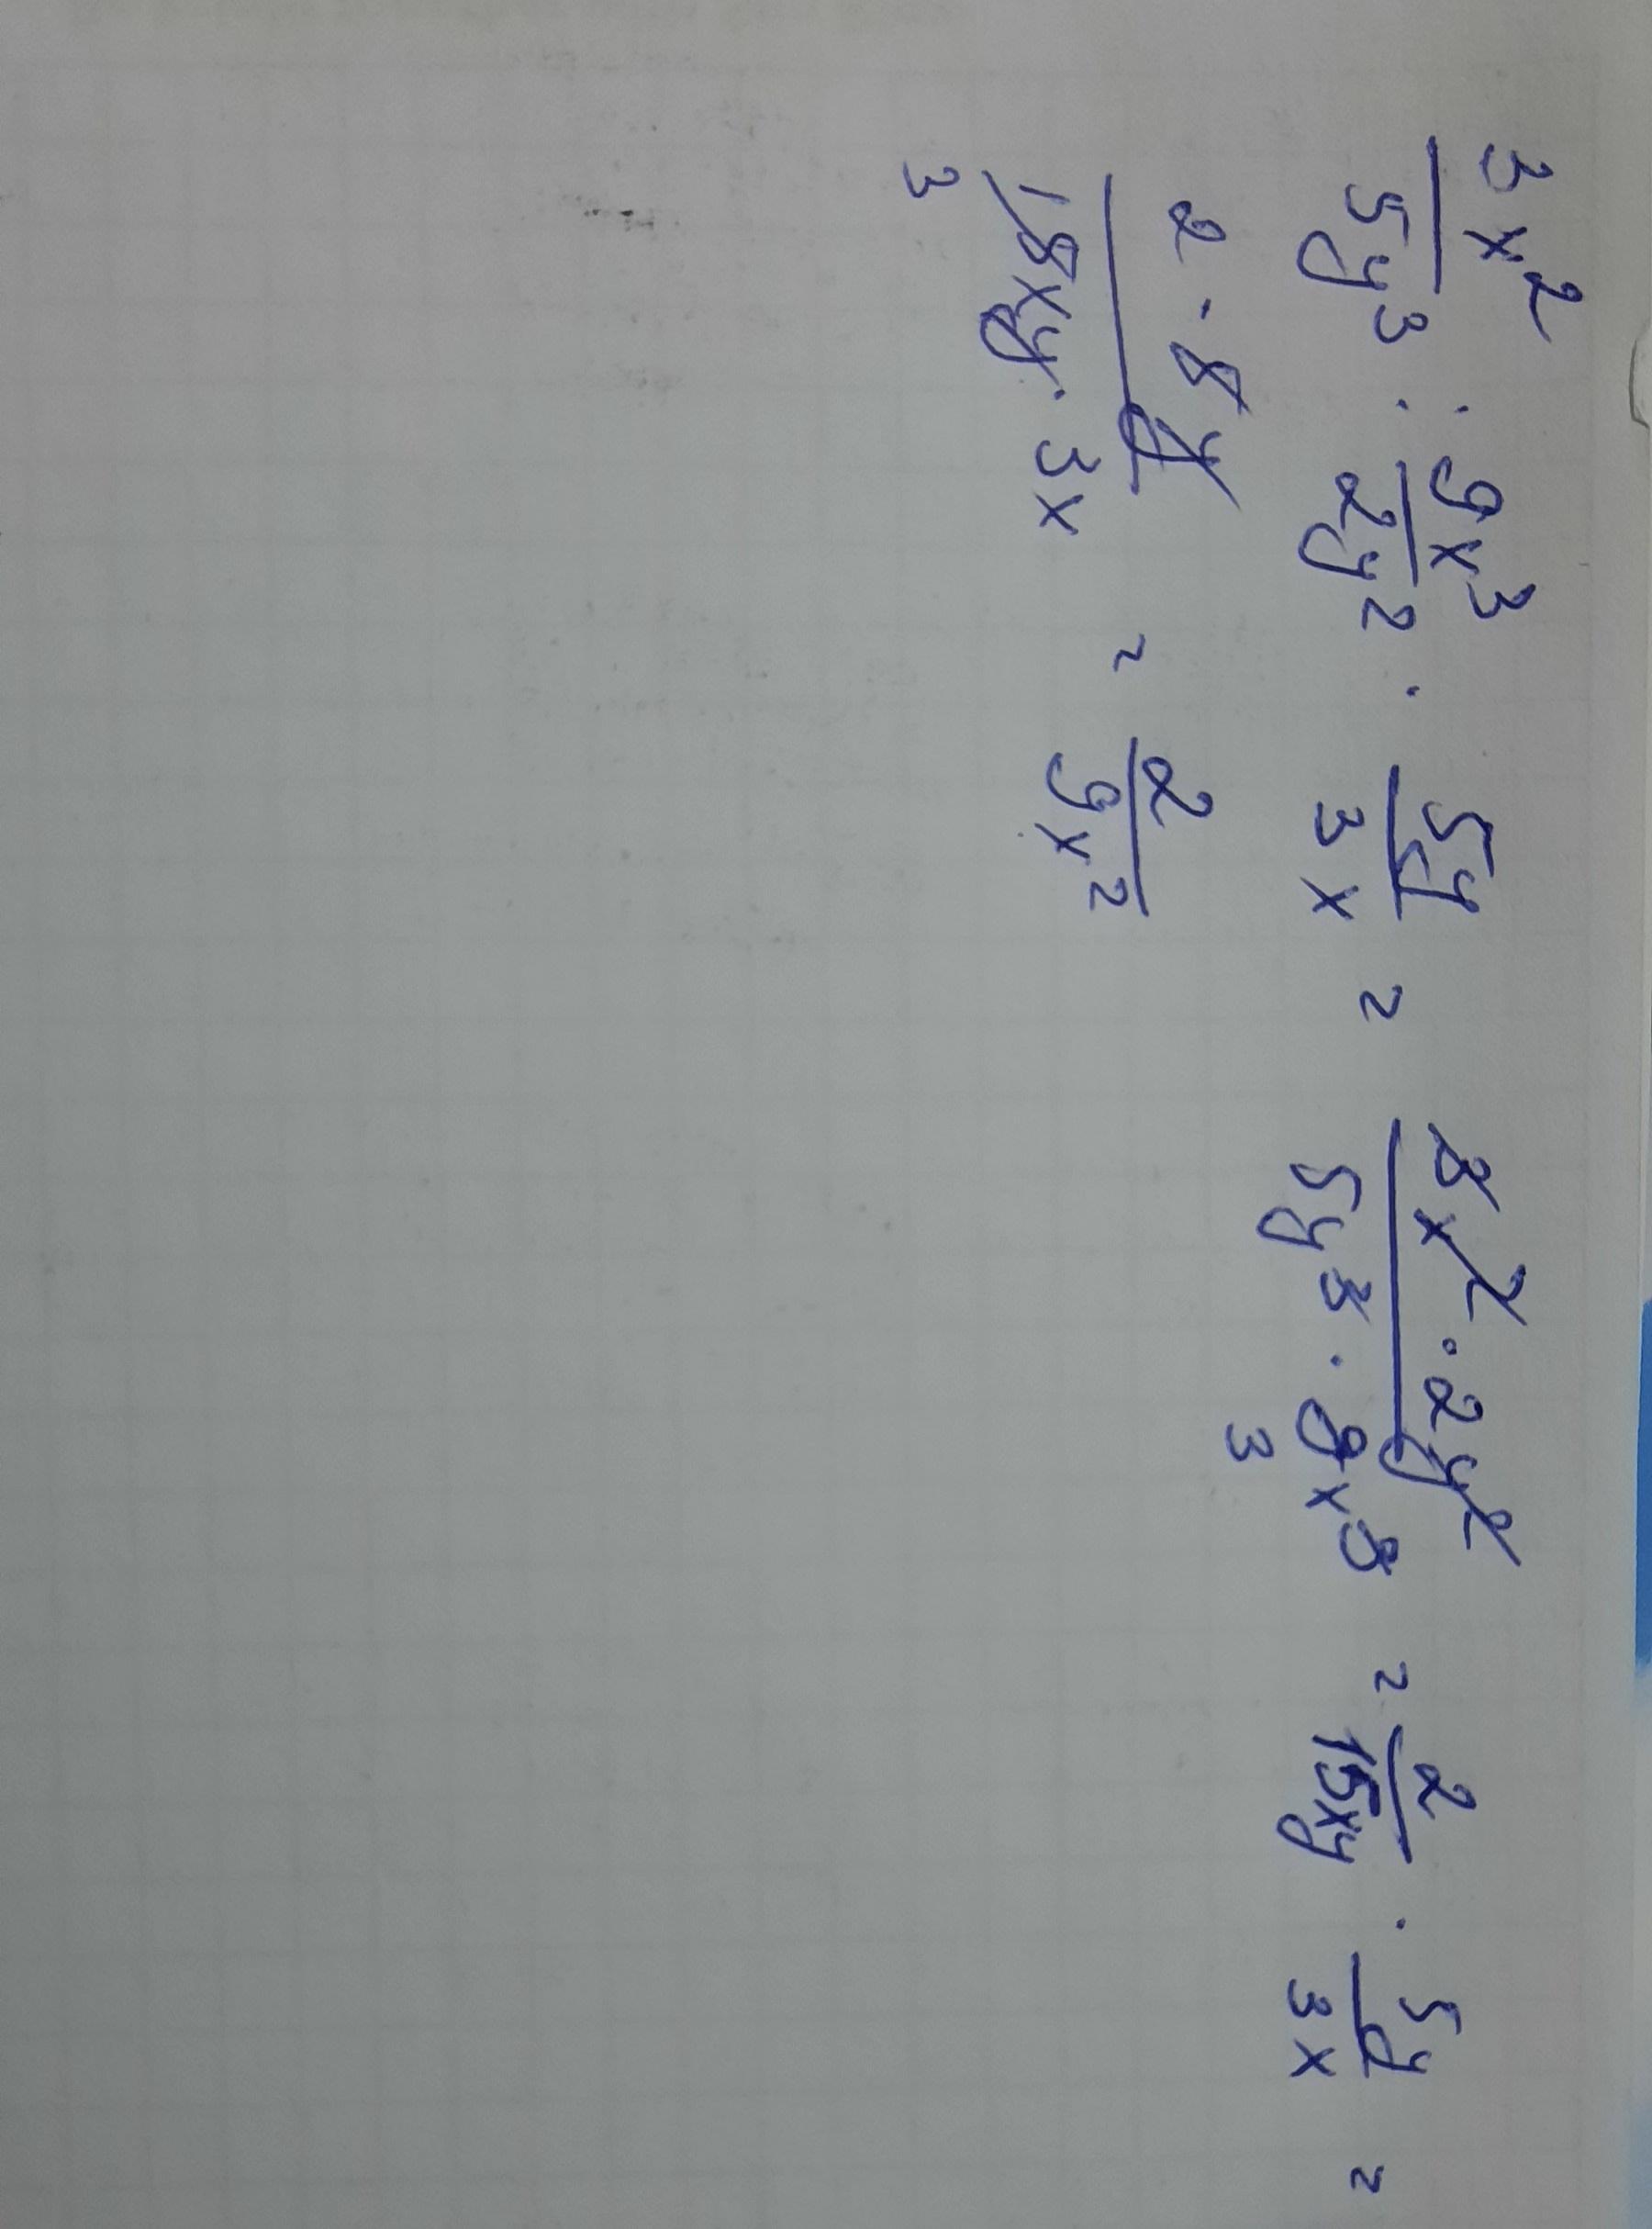 3x²/5y³ : 9x³/2y² · 5y/3x = 3x² · 2y²/5y³ · 9x³ 3 = 2/15xy · 5y/3x =
2 · 5y/15xy · 3x 3 = 2/9x²